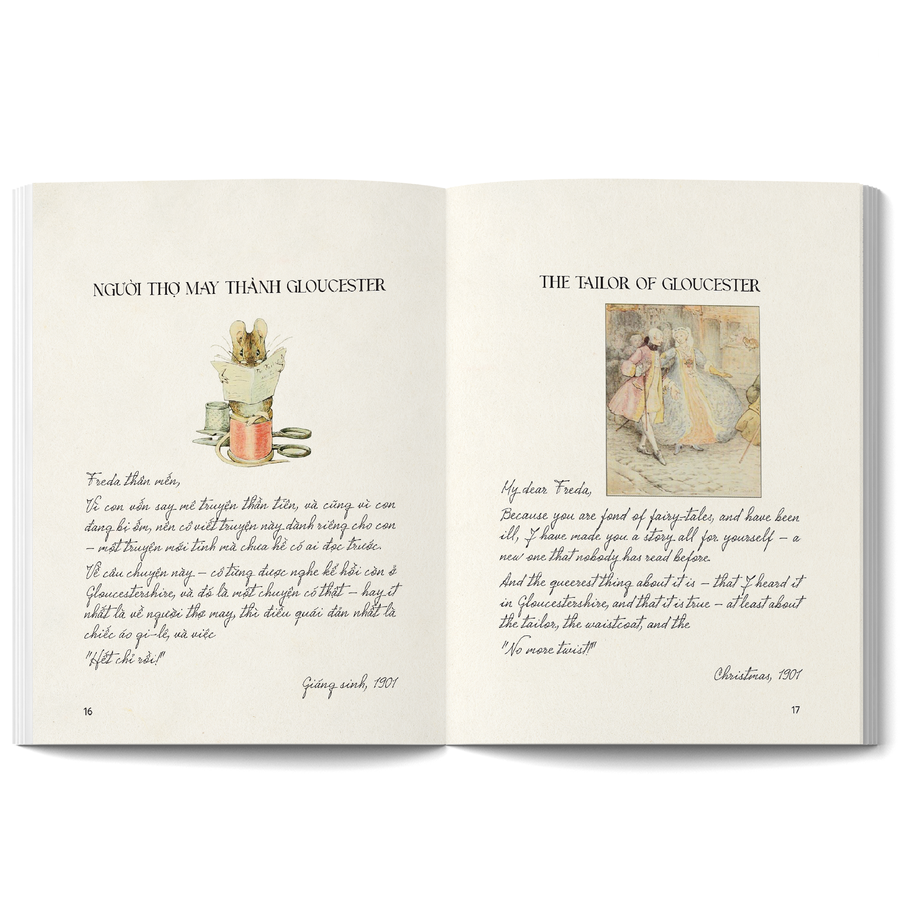 NGƯỜI THỢ MAY THÀNH GLOUCESTER
Freda thân mến,
Vì con vốn say mê truyện thần tiên, và cũng vì con
đang bị ốm, nên cô viết truyện này dành riêng cho con
– một truyện mới tinh mà chưa hề có ai đọc trước.
Về câu chuyện này – cô từng được nghe kể hồi còn ở
Gloucestershire, và đó là một chuyện có thật – hay ít
nhất là về người thợ may, thì điều quái đản nhất là
chiếc áo gi-lê, và việc
"Hết chỉ rồi!"
Giáng sinh, 1901
16
THE TAILOR OF GLOUCESTER
My dear Freda,
Because you are fond of fairy-tales, and have been
ill, I have made you a story all for yourself – a
new one that nobody has read before.
And the queerest thing about it is – that I heard it
in Gloucestershire, and that it is true – at least about
the tailor, the waistcoat, and the
"No more twist!"
Christmas, 1901
17